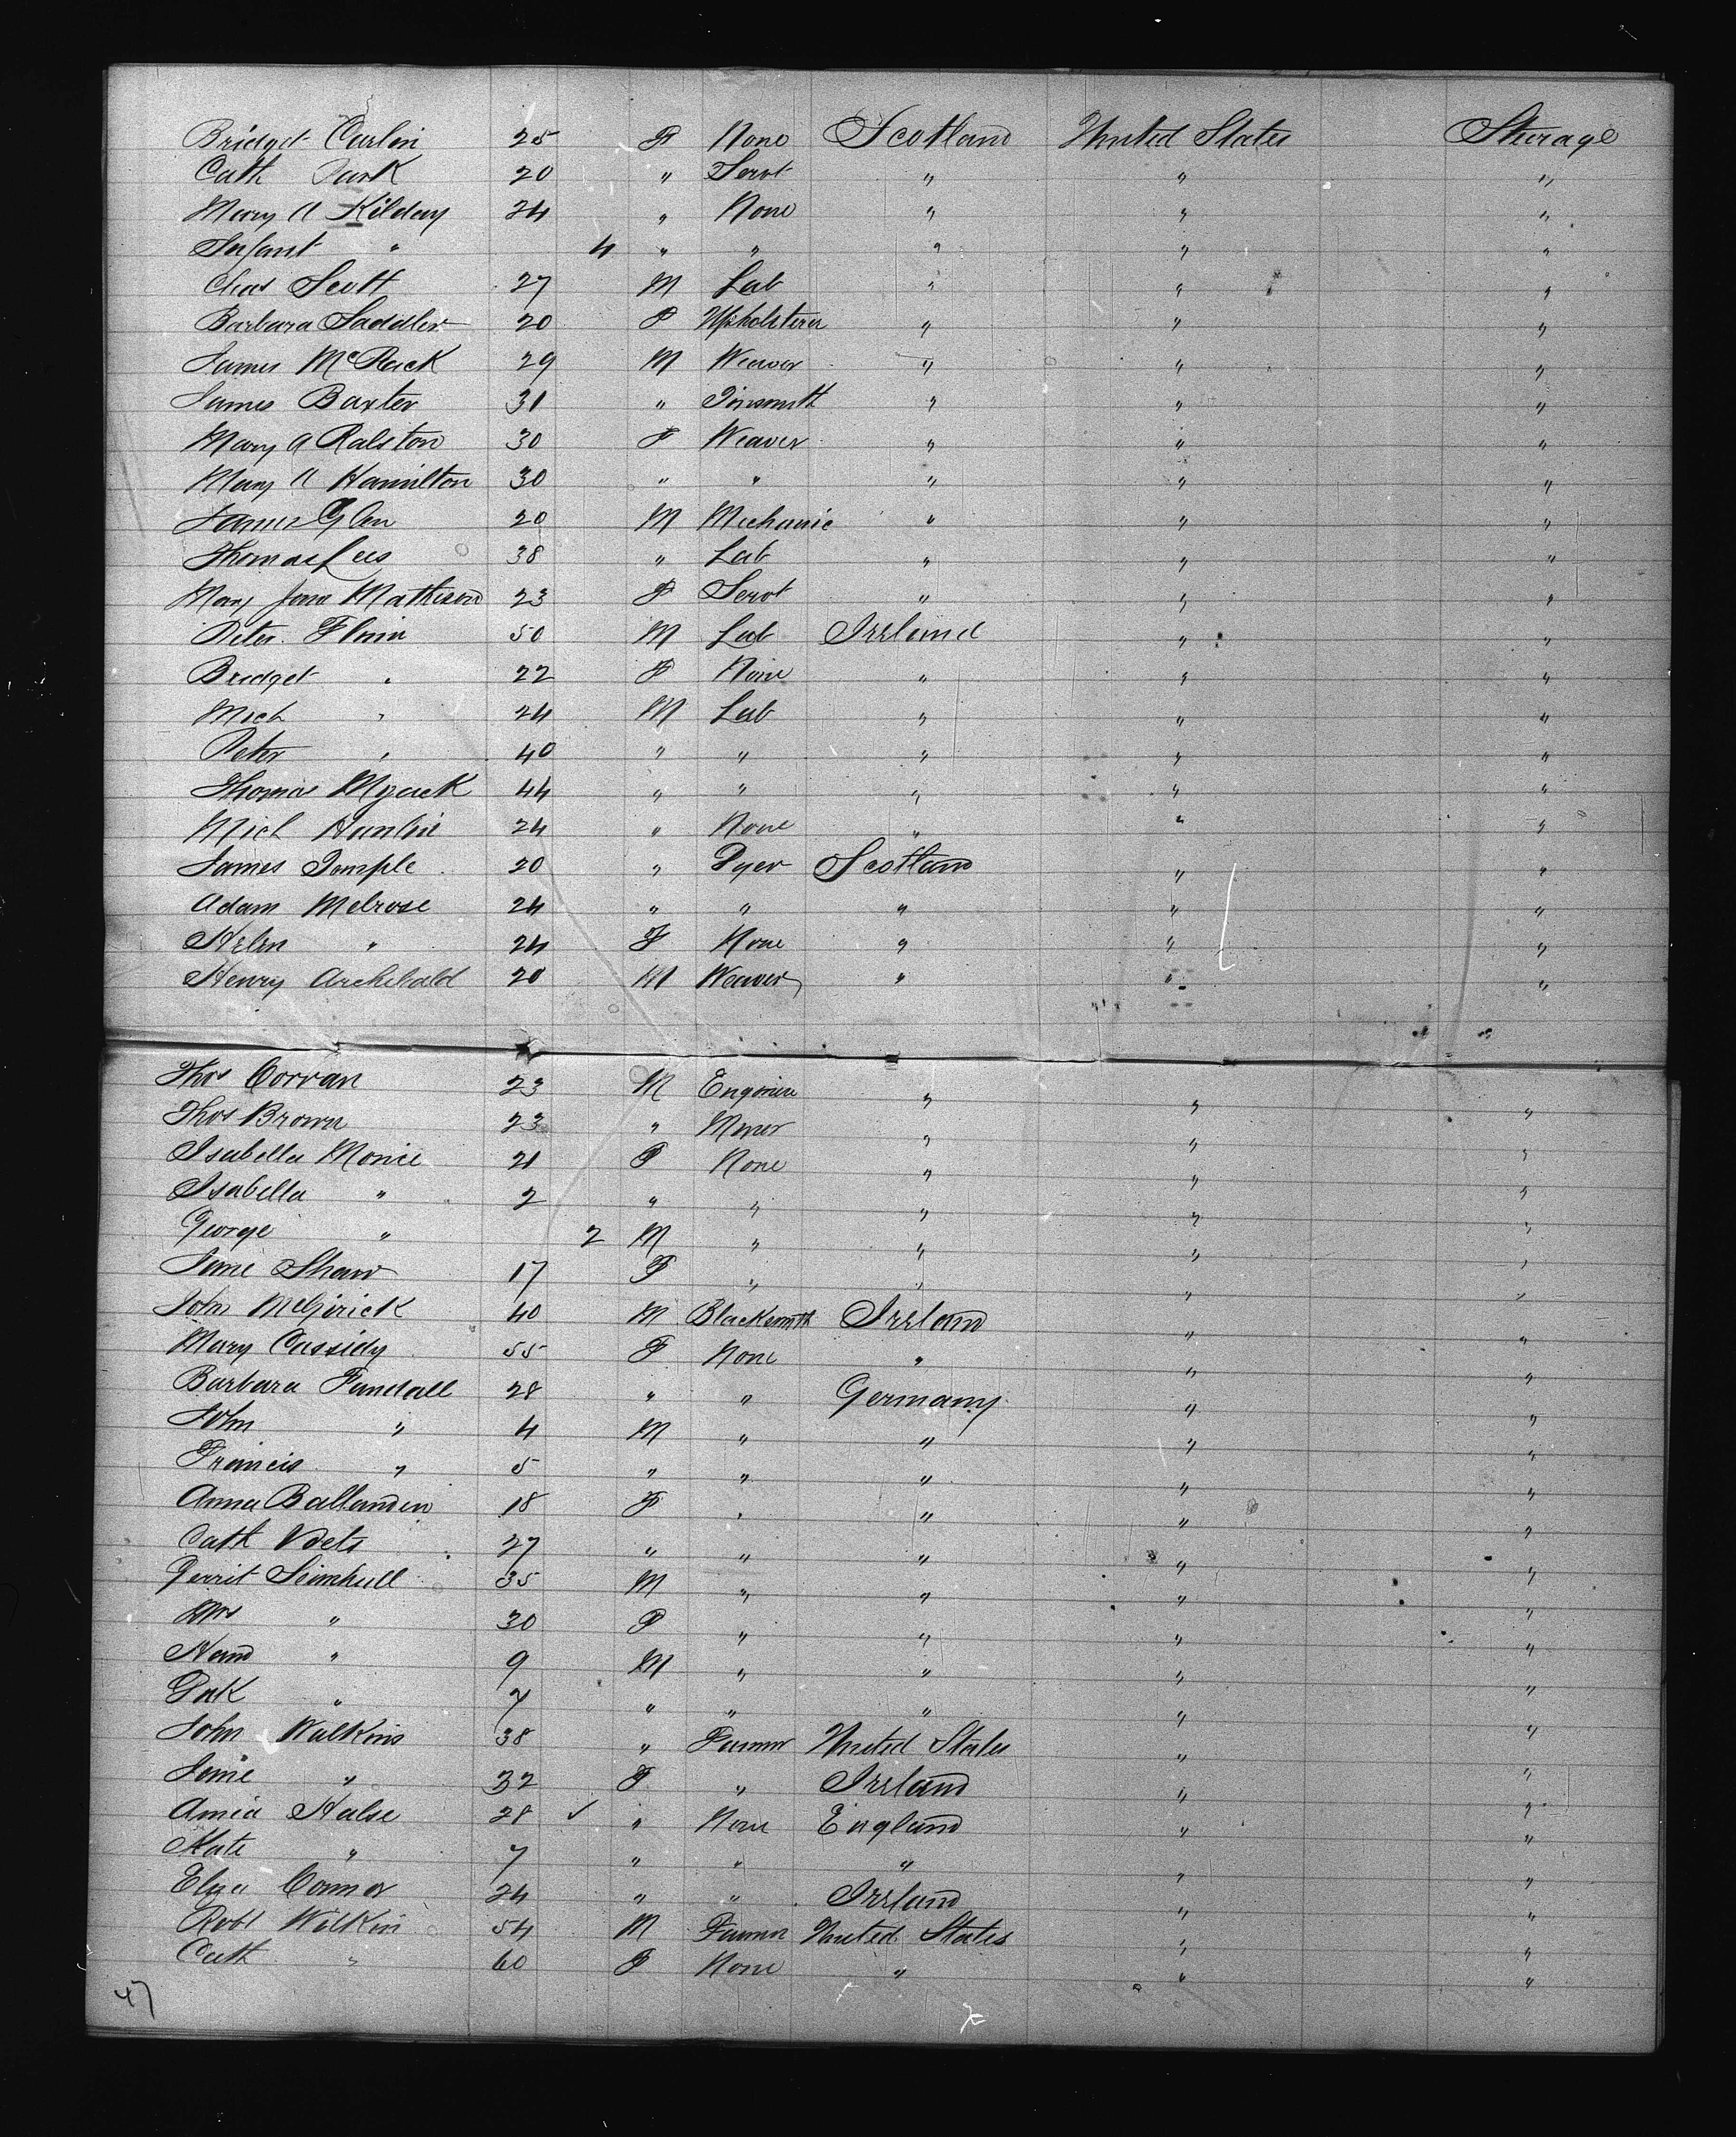 Bridget Carlin 25 F None Scotland United States Steerage
Cath Park 20 " Servt " " "
Mary A Kilday 24 " None " " "
Infant " 4 " " " " "
Chas Scott 27 M Lab " " "
Barbara Saddler 20 F Upholsterer " " "
James 29 M Weaver " " "
James Baxter 31 " Tinsmith " " "
Mary A Ralston 30 F Weaver " " "
Mary A Hamilton 30 " " " " "
James Glen 20 M Mechanic " " "
Thomas Lees 38 " Lab " " "
Mary Jane Mathieson 23 F Servt " " "
Peter 50 M Lab Ireland " "
Bridget " 22 F None " " "
Mich " 24 M Lab " " "
Peter " 40 " " " " "
Thomas 44 " " " " "
Mich 24 " None " " "
James Temple 20 " Dyer Scotland " "
Adam Melrose 24 " " " " "
Helen " 24 F None " " "
Henry Archibald 20 M Weaver " " "
Thos Corran 23 M Engineer " " "
Thos Brown 23 " Miner " " "
Isabella 21 F None " " "
Isabella " 2 " " " " "
George " 2 M " " " "
Jane Shaw 17 F " " " "
John 40 M Blacksmith Ireland " "
Mary Cassidy 55 F None " " "
Barbara Fundall 28 " " Germany " "
John " 4 M " " " "
Francis " 5 " " " " "
Anna 18 F " " " "
Cath 27 " " " " "
Gerrit 35 M " " " "
Mrs " 30 F " " " "
" 9 M " " " "
" 7 " " " " "
John Walkins 38 " Farmer United States " "
Jane " 32 F " Ireland " "
Halse 28 ✓ " None England " "
Kate " 7 " " " " "
Eliza Connor 24 " " Ireland " "
Robt Wilkin 54 M Farmer United States " "
Cath " 60 F None " " "
47